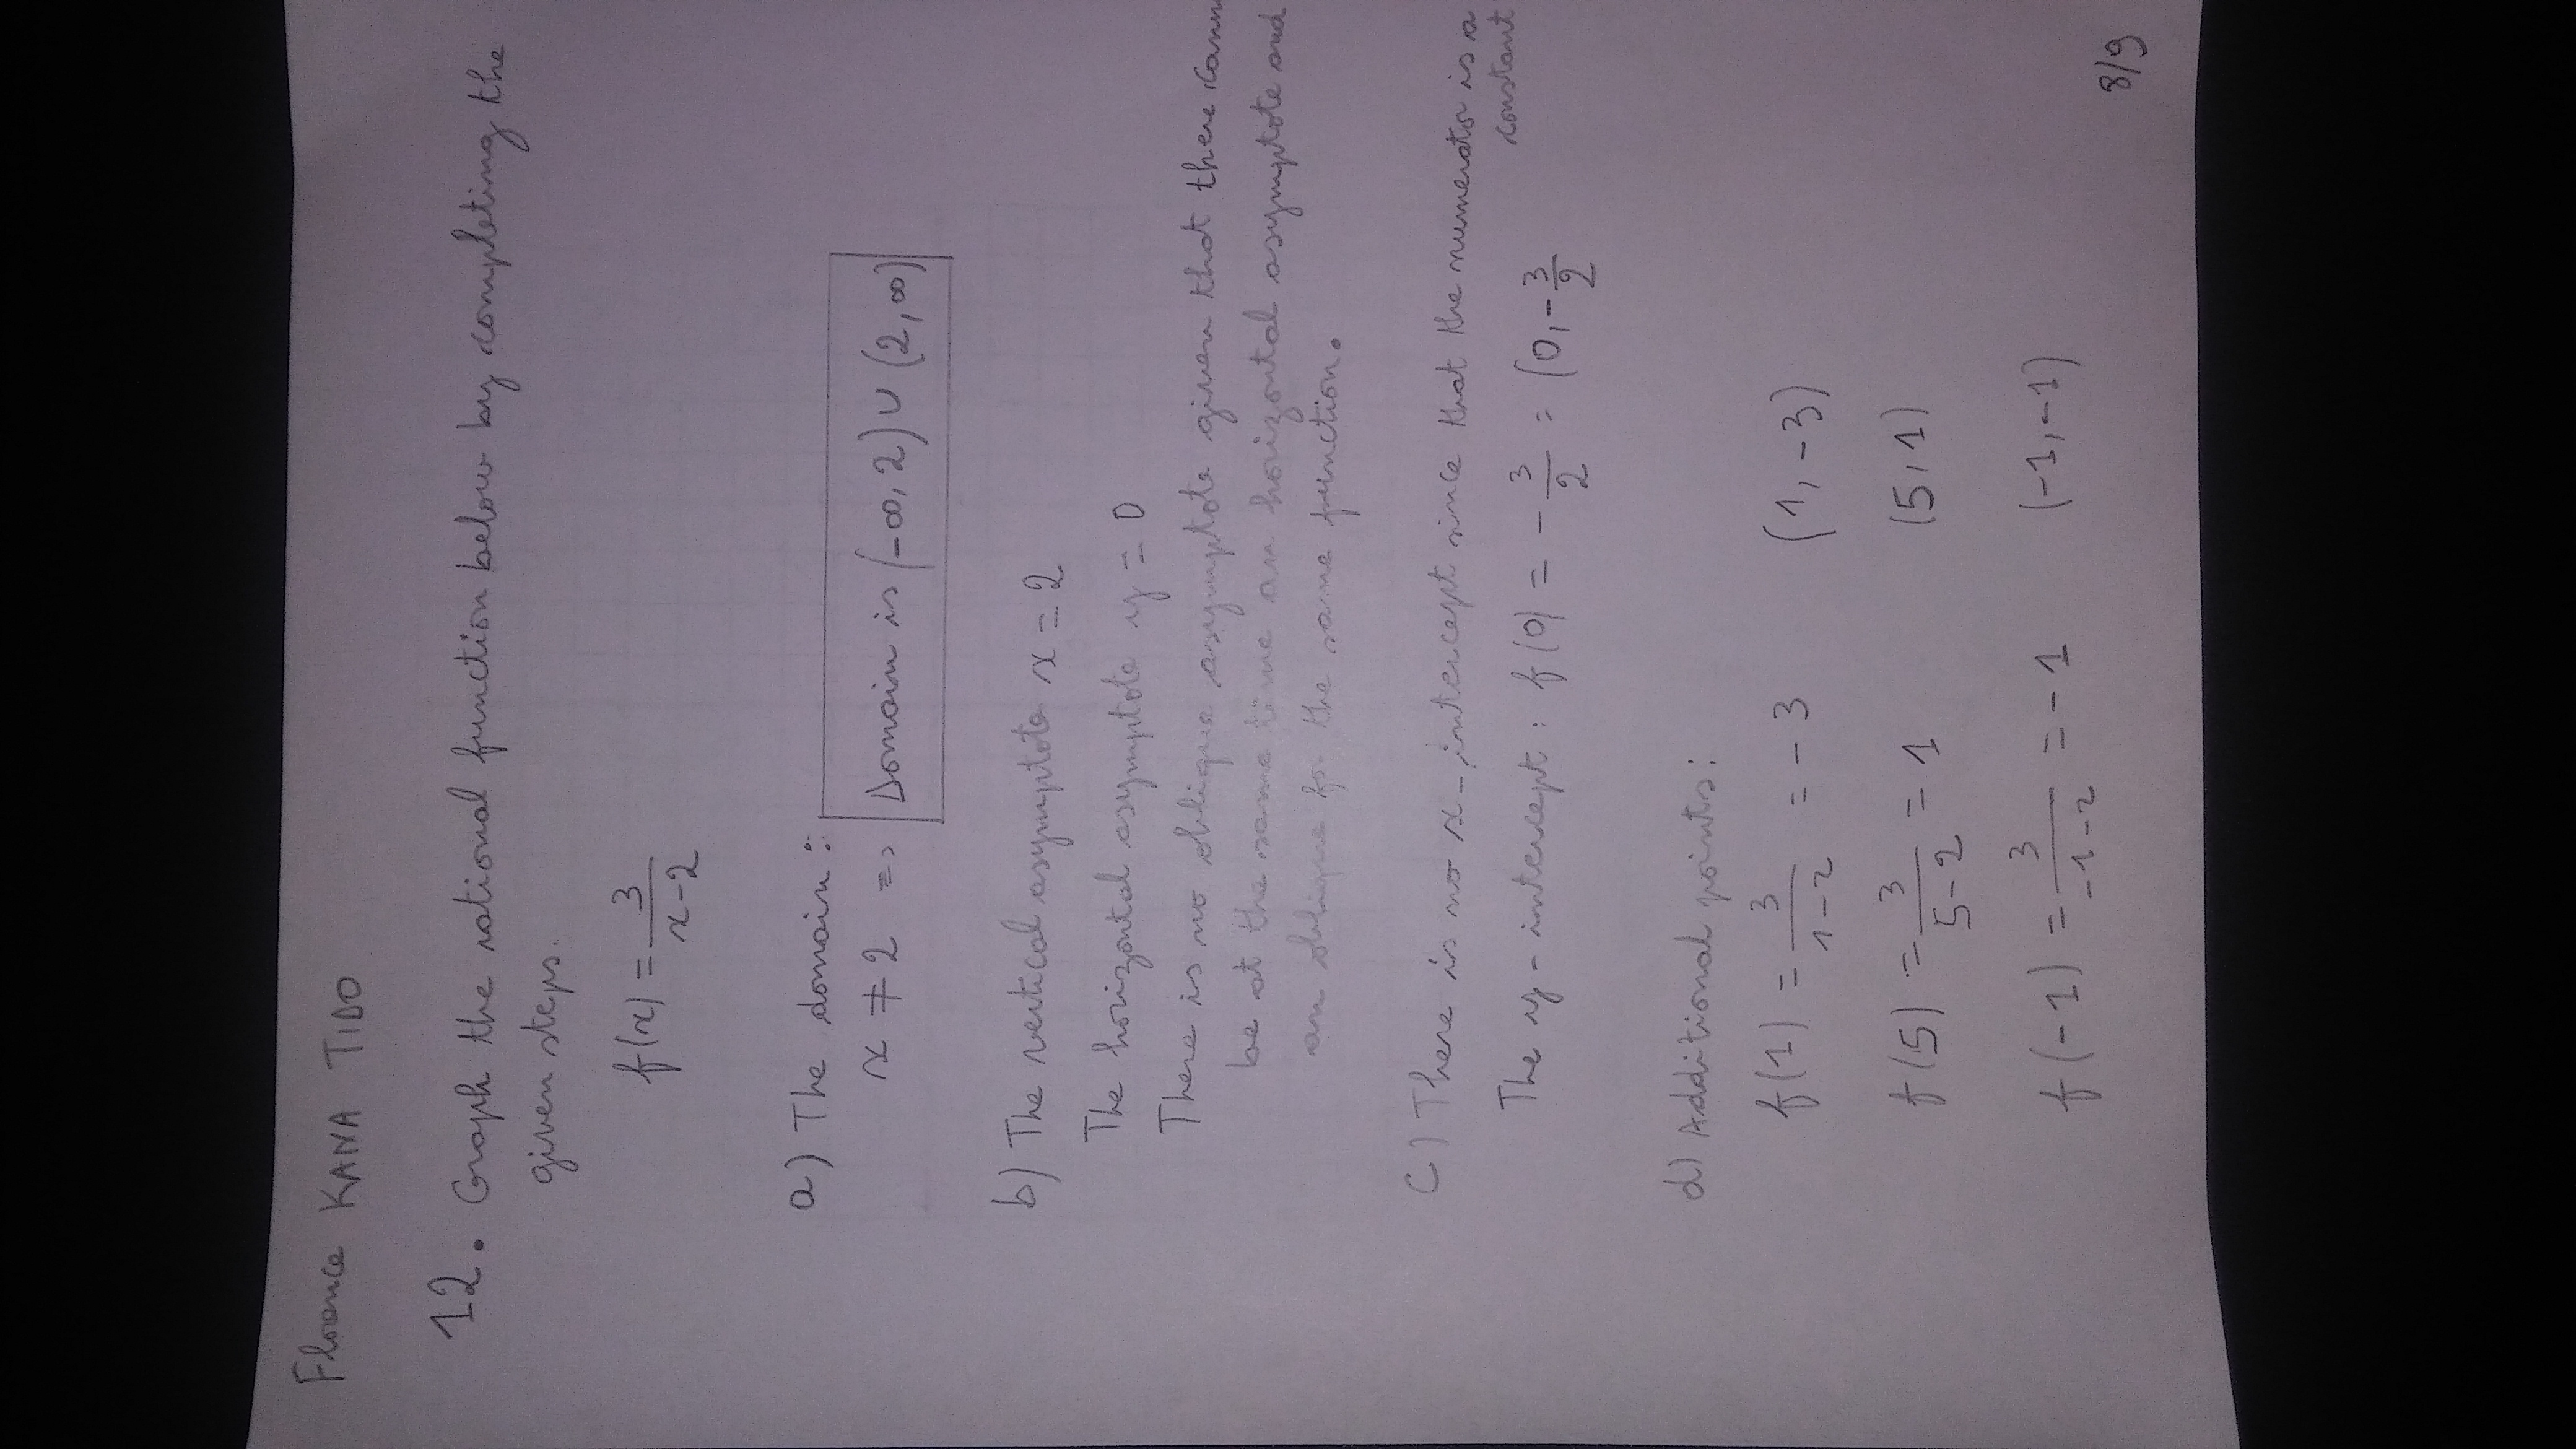 Florence KANA TIDO
12. Graph the rational function below by completing the
given steps.
f(x) = 3/(x-2)
a) The domain:
x ≠ 2 => Domain is (-∞, 2) ∪ (2, ∞)
b) The vertical asymptote x = 2
The horizontal asymptote y = 0
There is no oblique asymptote given that there
be at the same time an horizontal asymptote and
an oblique for the same function.
c) There is no x-intercept since that the numerator is a
constant
The y-intercept: f(0) = -3/2 = (0, -3/2
d) Additional points:
f(1) = 3/(1-2) = -3 (1, -3)
f(5) = 3/(5-2) = 1 (5, 1)
f(-1) = 3/(-1-2) = -1 (-1, -1)
8/9